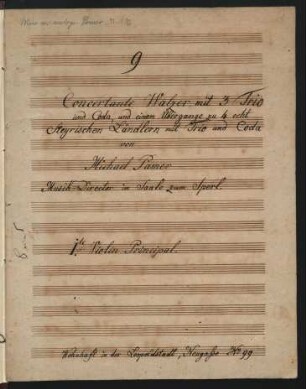 9
Concertante Walzer mit 3 Trio
und Coda, und einem Übergange zu 4 echt
Steyrischen Ländlern mit Trio und Coda
von
Michael Pamer
Musik-Director im Saale zum Sperl.
1te Violin Principal.
Wohnhaft in der Leopoldstadt, Neugasse No 99